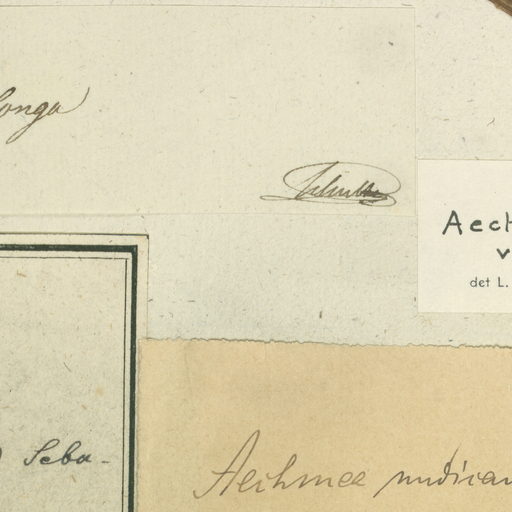 longa
Schultes
Aech
v
det L.
Seba-
Aechmea nudicau